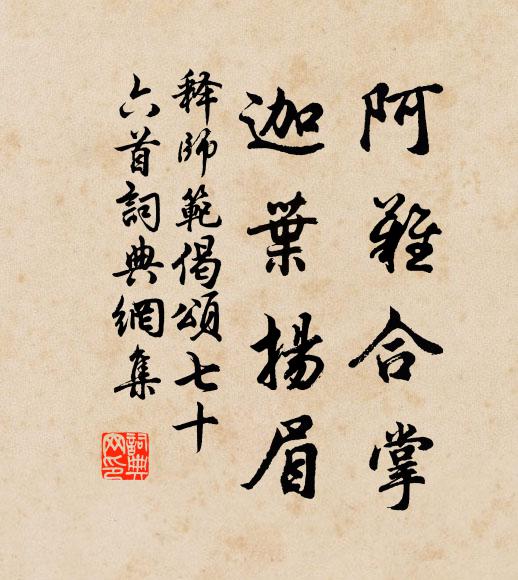 阿難合掌
迦葉揚眉
释師範偈頌七十
六首詞典網集
詞典网印